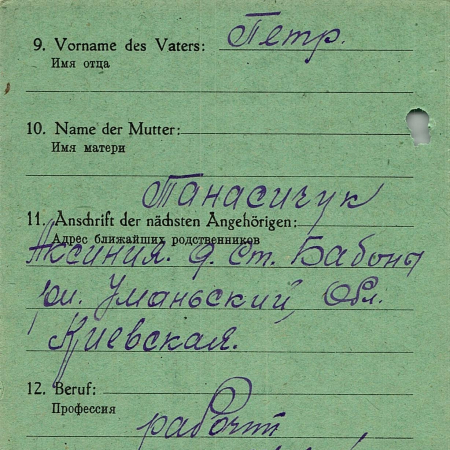 9. Vorname des Vaters: Петр.
Имя отца
10. Name der Mutter:
Имя матери
Танасичук
11. Anschrift der nächsten Angehörigen:
Адрес ближайших родственников
Аксиния. д. ст. Бабона
Уманьский, Обл.
Киевская.
12. Beruf:
Профессия